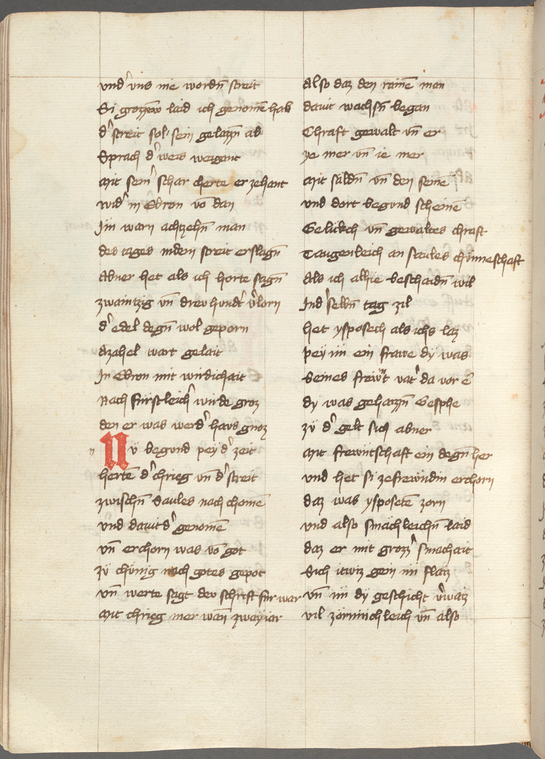 vnd᷑ vns nie wordn̄ streit
Si grozzew laid ich genomē hab
d᷑ streit sol sein gelazzn̄ ab
Sprach d᷑ weis weigant
mit sein᷑ schar cherte er zehant
wid᷑ in Ebron vō dan
Im warn achtzehn̄ man
des tages indem streit erslagn̄
Abner het als ich horte sagn̄
zwaintzig vn̄ drew hund᷑t v᷑lorn
d᷑ edel degn̄ wol geporn
Azahel wart gelait
In Ebron mit wirdichait
Nach furstleich᷑ wirde groz
den er was werd᷑ havs gnoz
Nv begund pey d᷑ zeit
hertē d᷑ chrieg vn̄ d᷑ streit
zwischn̄ Saules nach chomē
vnd dauit d᷑ genomē
vn̄ erchorn was vō got
zü chünig nach gotes gepot
vn̄ werte sagt dev schrift für war
mit chrieg mer wan zway iar
Also daz den rainē man
dauit wachsn̄ began
Chraft gewalt vn̄ er
ye mer vn̄ ie mer
mit säldn̄ vn̄ den seinē
vnd dort begund scheinē
Gelükch vn̄ gewaltes chraft
Taugenleich an Saules chünneschaft
Als ich alhie beschaidn̄ wil
In d᷑ selbn̄ tag zil
het ysposech als ichs laz
pey im ein frawe dy was
Seines frewn̄t vat᷑ da vor ē
dy was gehazzn̄ Gesphe
zü d᷑ gelt sich abner
mit frewntschaft ein degn̄ her
vnd het si ze frewndin erchorn
daz was ysposetē zorn
vnd also smachleichn̄ laid
daz er mit groz᷑ smochait
Sich itwiz gein im flaiz
vn̄ im dy geschicht v᷑waiz
vil zornnichleich vn̄ also